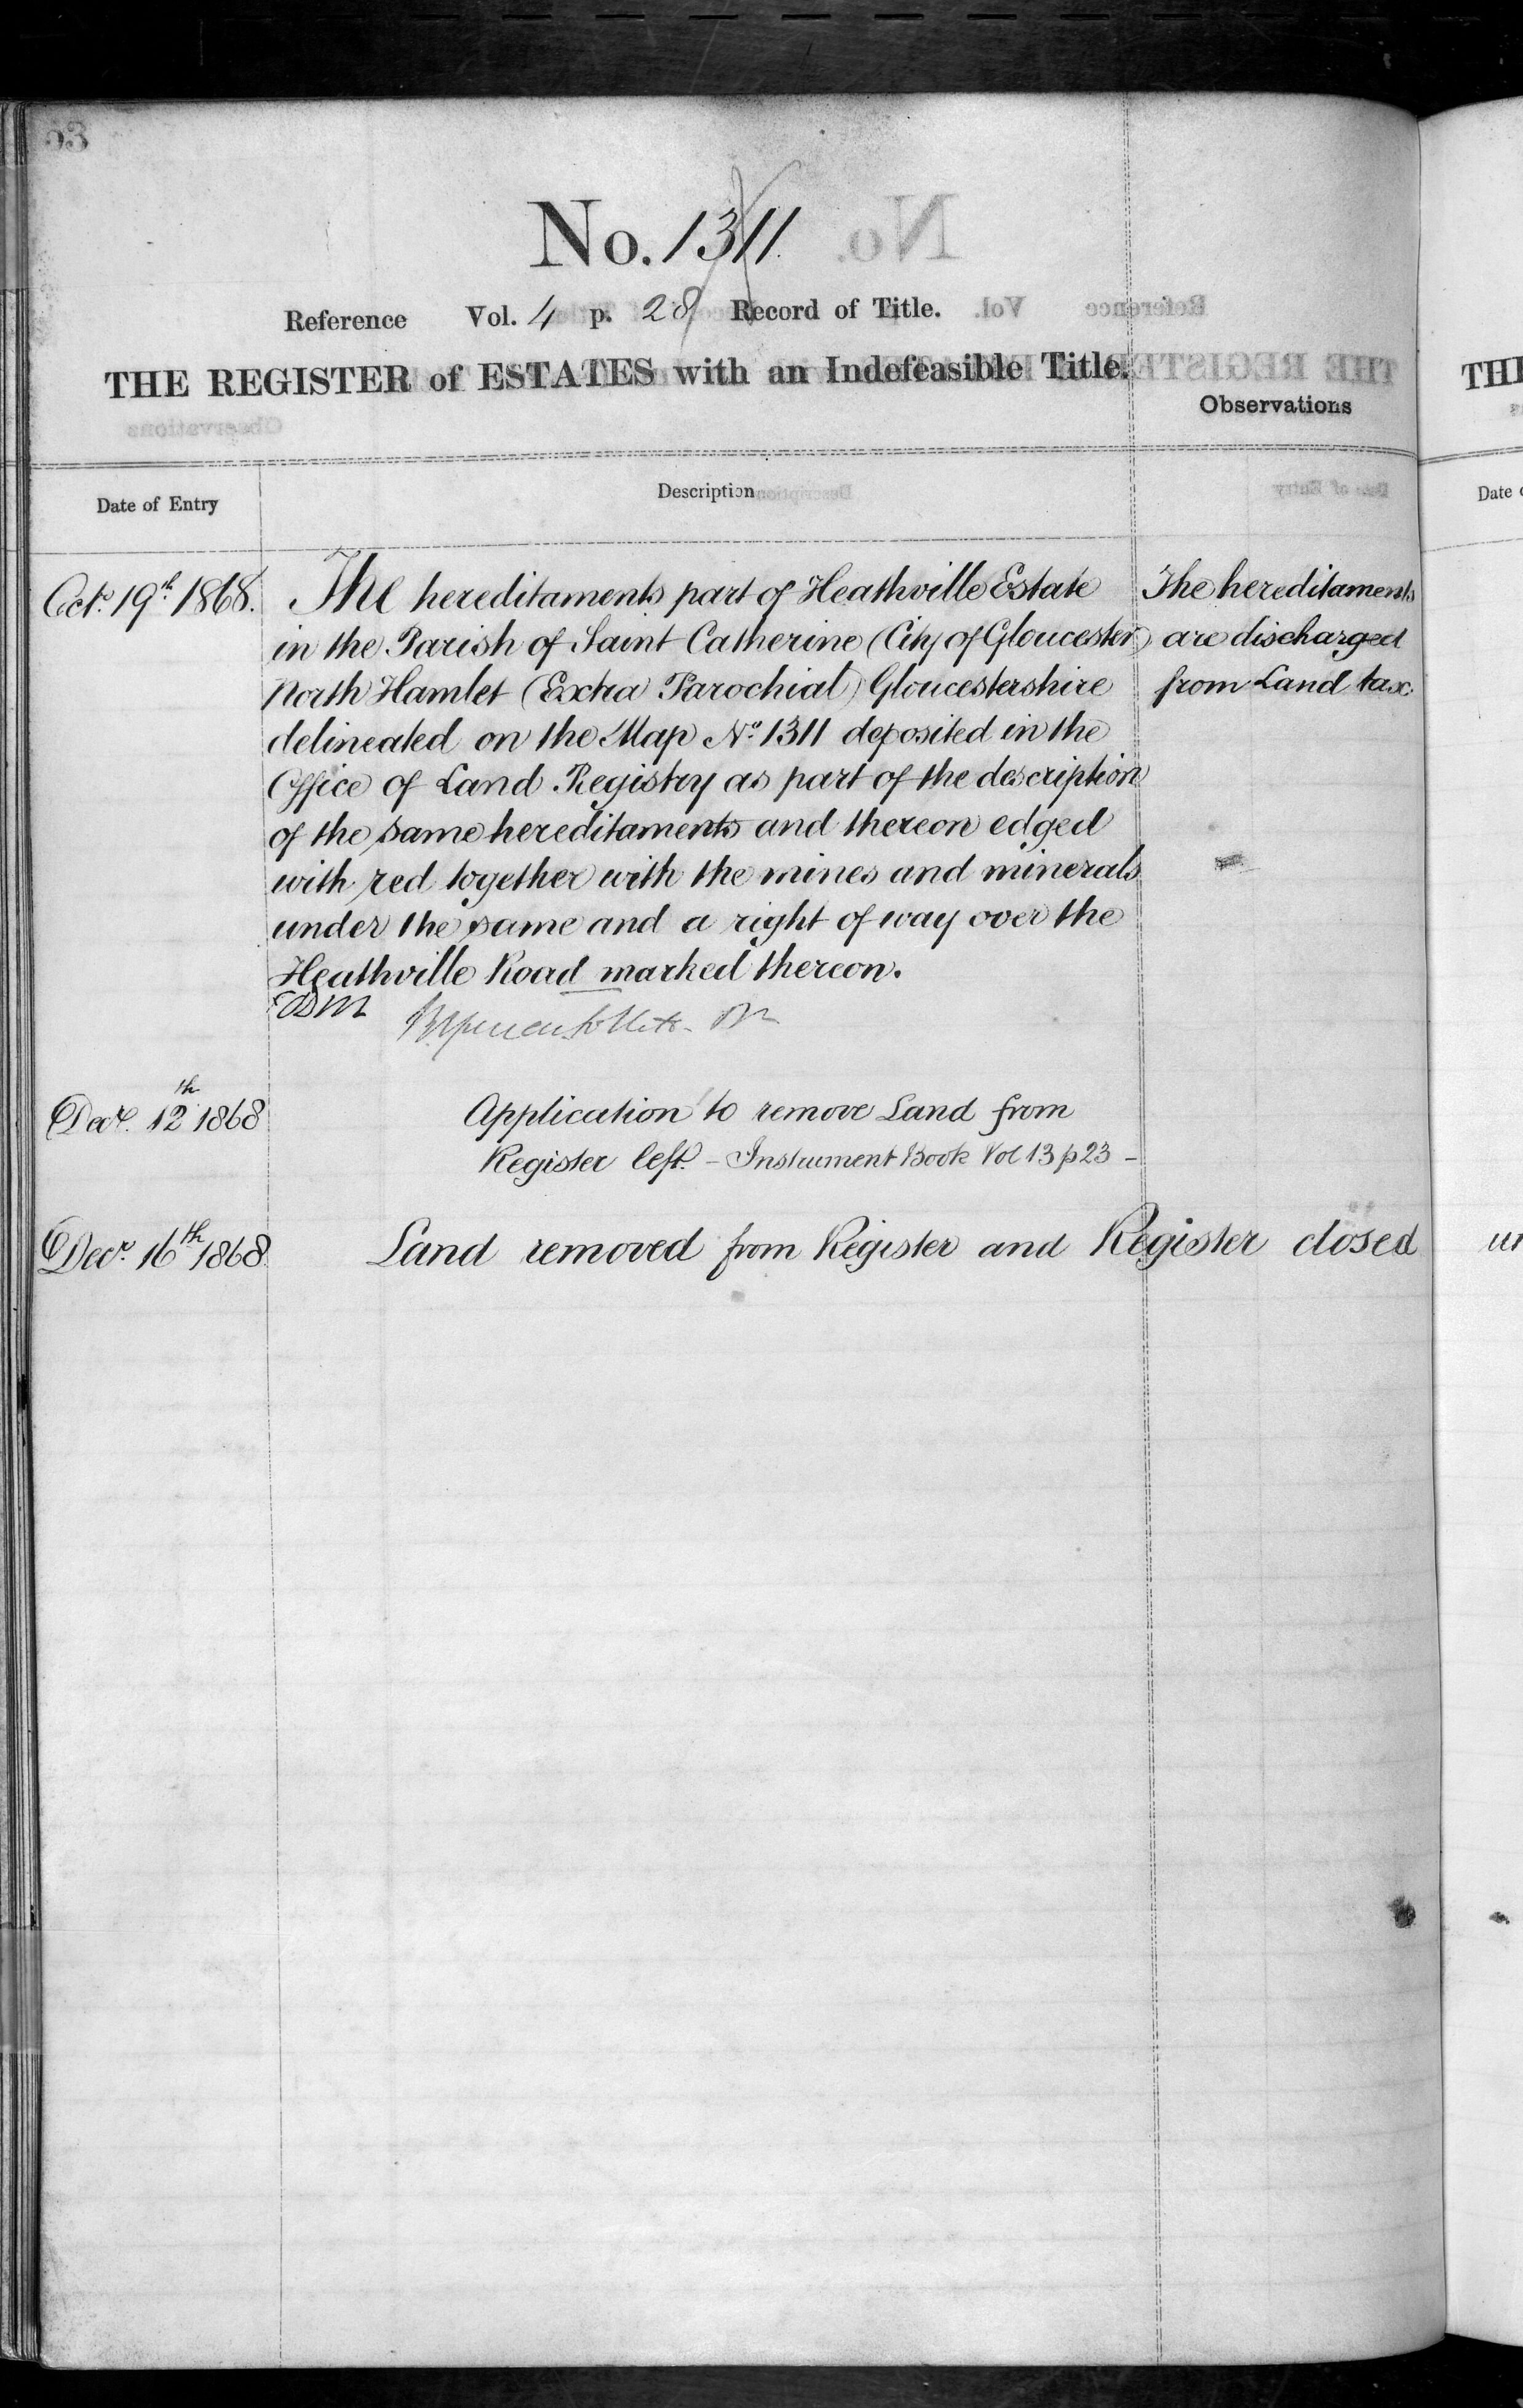 53
No. 1311.
Reference Vol. 4 p. 28 Record of Title.
THE REGISTER of ESTATES with an Indefeasible Title.
Observations
Date of Entry
Description
Oct. 19th 1868. The hereditaments part of Heathville Estate
in the Parish of Saint Catherine (City of Gloucester)
North Hamlet (Extra Parochial) Gloucestershire
delineated on the Map No 1311 deposited in the
Office of Land Registry as part of the description
of the same hereditaments and thereon edged
with red together with the mines and minerals
under the same and a right of way over the
Heathville Road marked thereon.
The hereditaments
are discharged
from Land tax.
Decr. 12th 1868 Application to remove Land from
Register left. - Instrument Book Vol 13 p 23 -
Decr. 16th 1868. Land removed from Register and Register closed
TH
Date